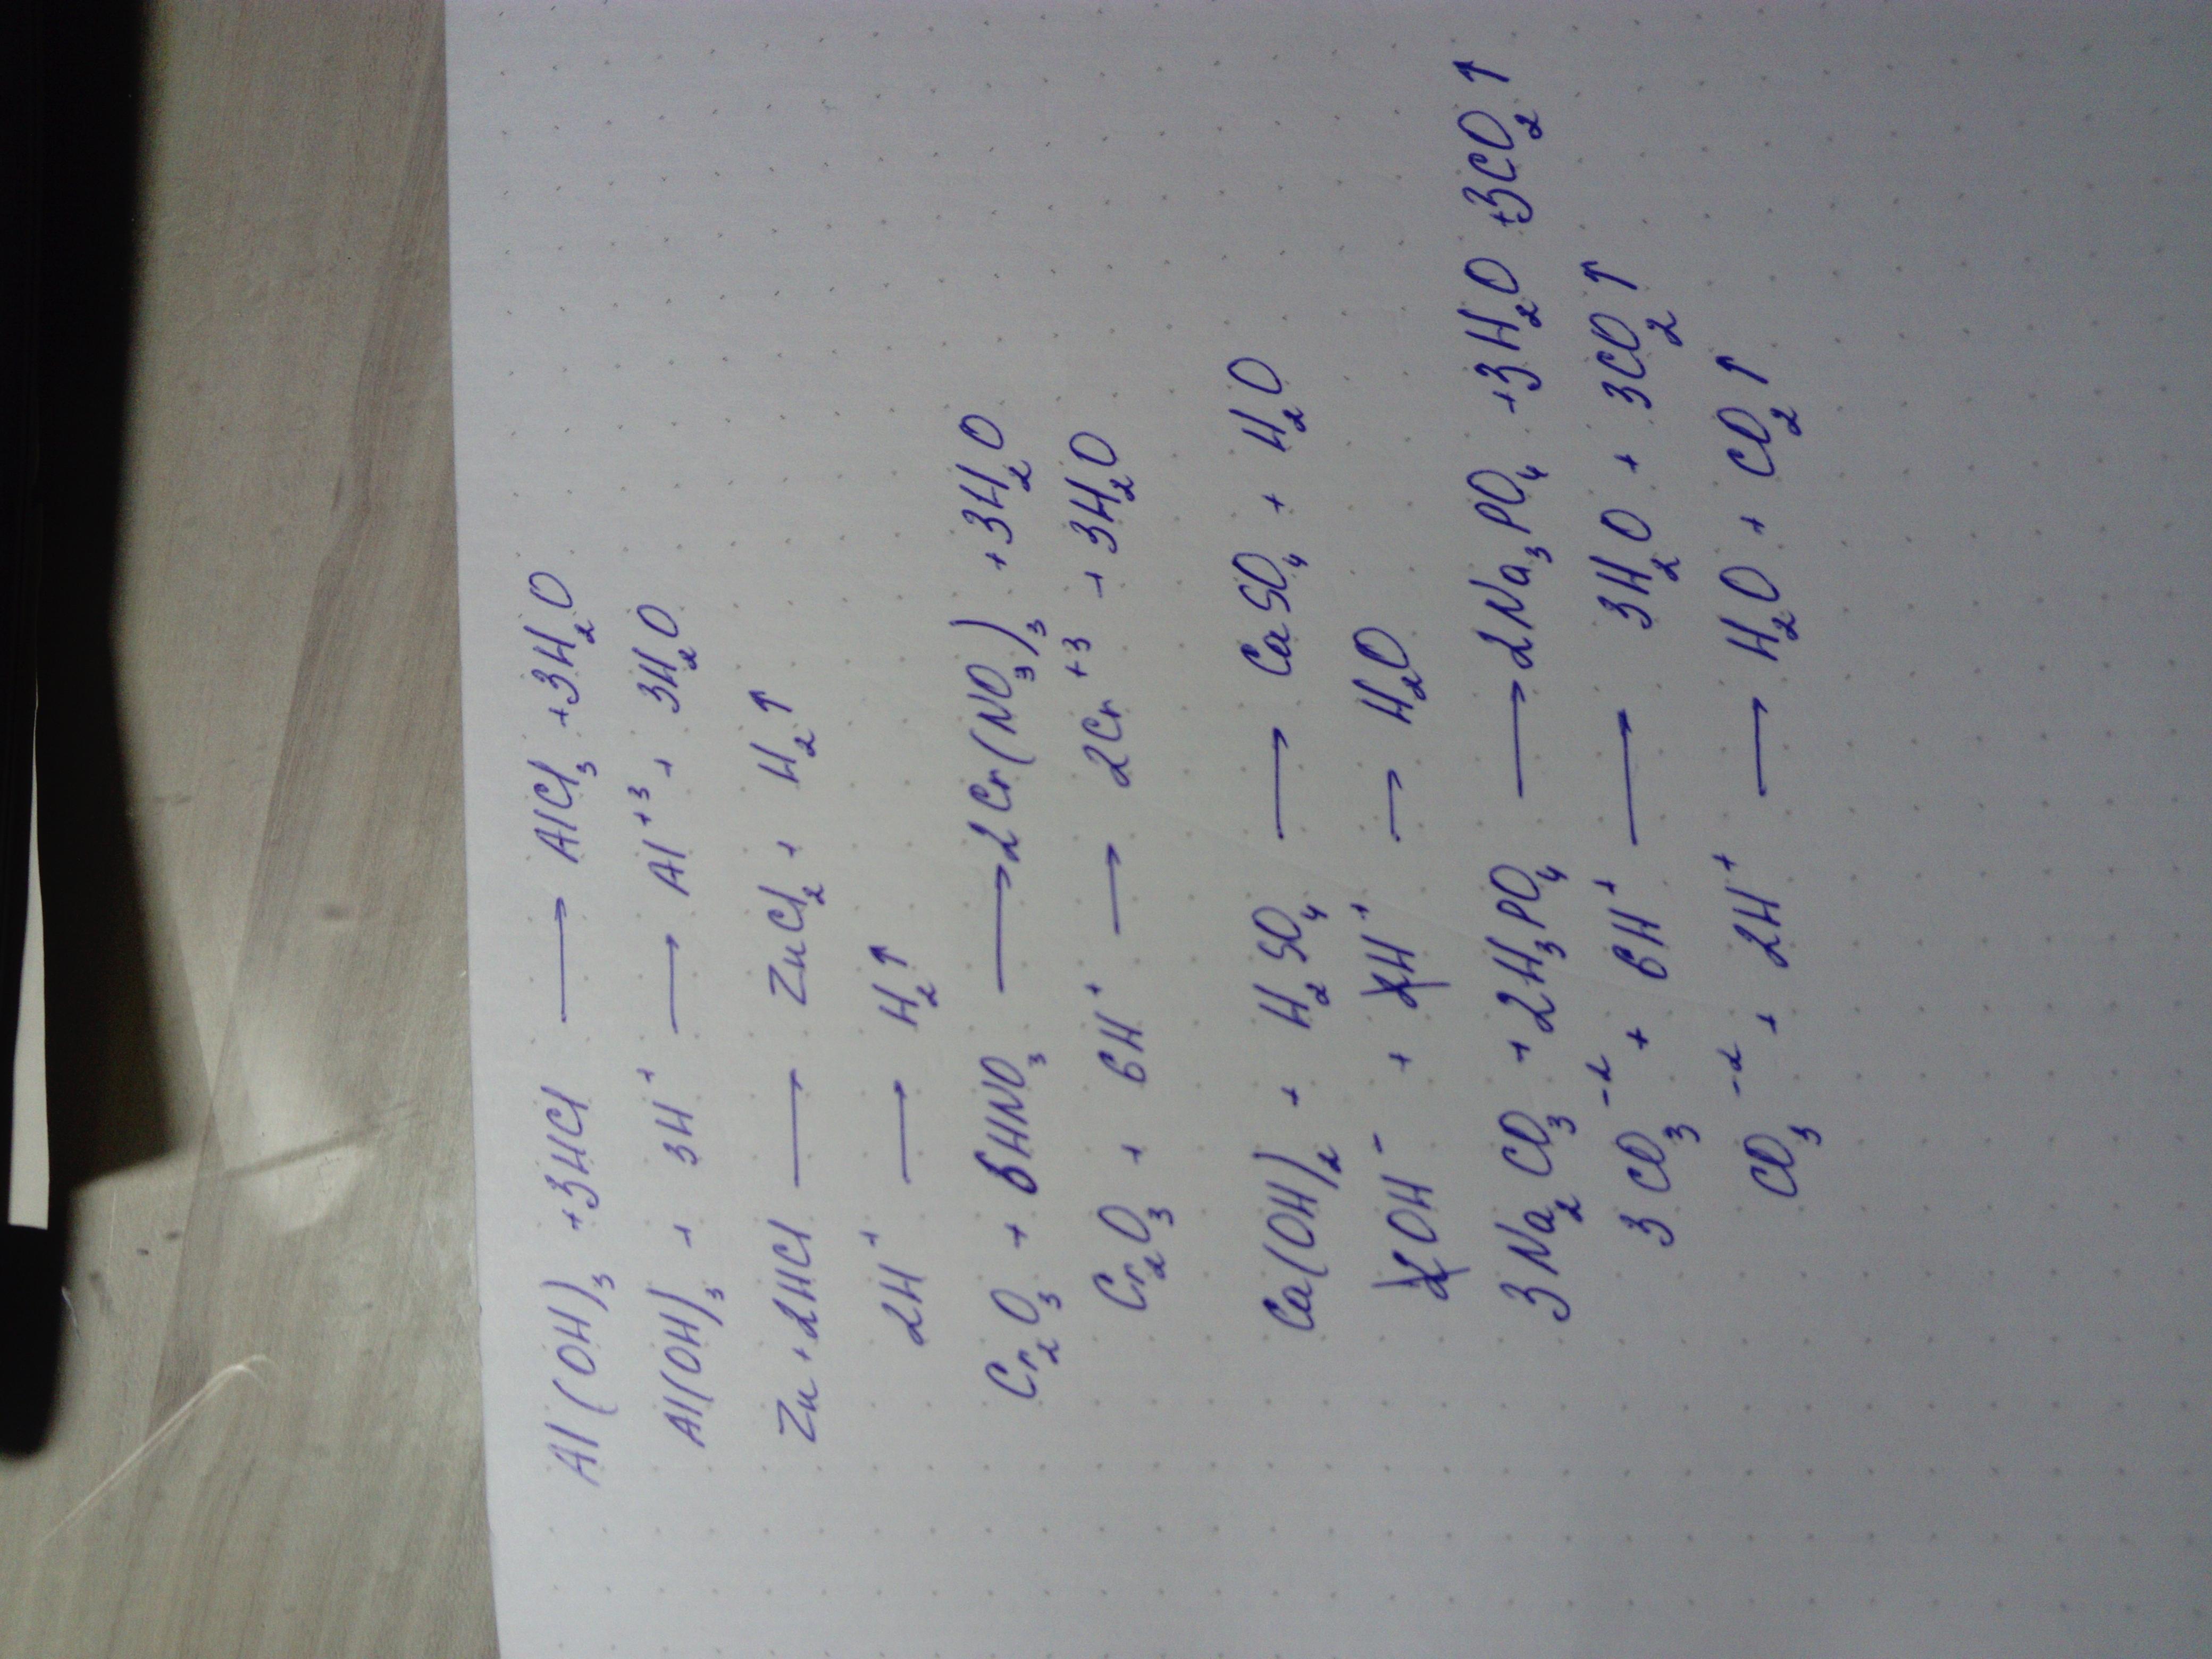 Al(OH)₃ + 3HCl ⟶ AlCl₃ + 3H₂O
Al(OH)₃ + 3H⁺ ⟶ Al⁺³ + 3H₂O
Zn + 2HCl ⟶ ZnCl₂ + H₂↑
2H⁺ ⟶ H₂↑
Cr₂O₃ + 6HNO₃ ⟶ 2Cr(NO₃)₃ + 3H₂O
Cr₂O₃ + 6H⁺ ⟶ 2Cr⁺³ + 3H₂O
Ca(OH)₂ + H₂SO₄ ⟶ CaSO₄ + H₂O
2OH⁻ + 2H⁺ ⟶ H₂O
3Na₂CO₃ + 2H₃PO₄ ⟶ 2Na₃PO₄ + 3H₂O + 3CO₂↑
3CO₃⁻² + 6H⁺ ⟶ 3H₂O + 3CO₂↑
CO₃⁻² + 2H⁺ ⟶ H₂O + CO₂↑